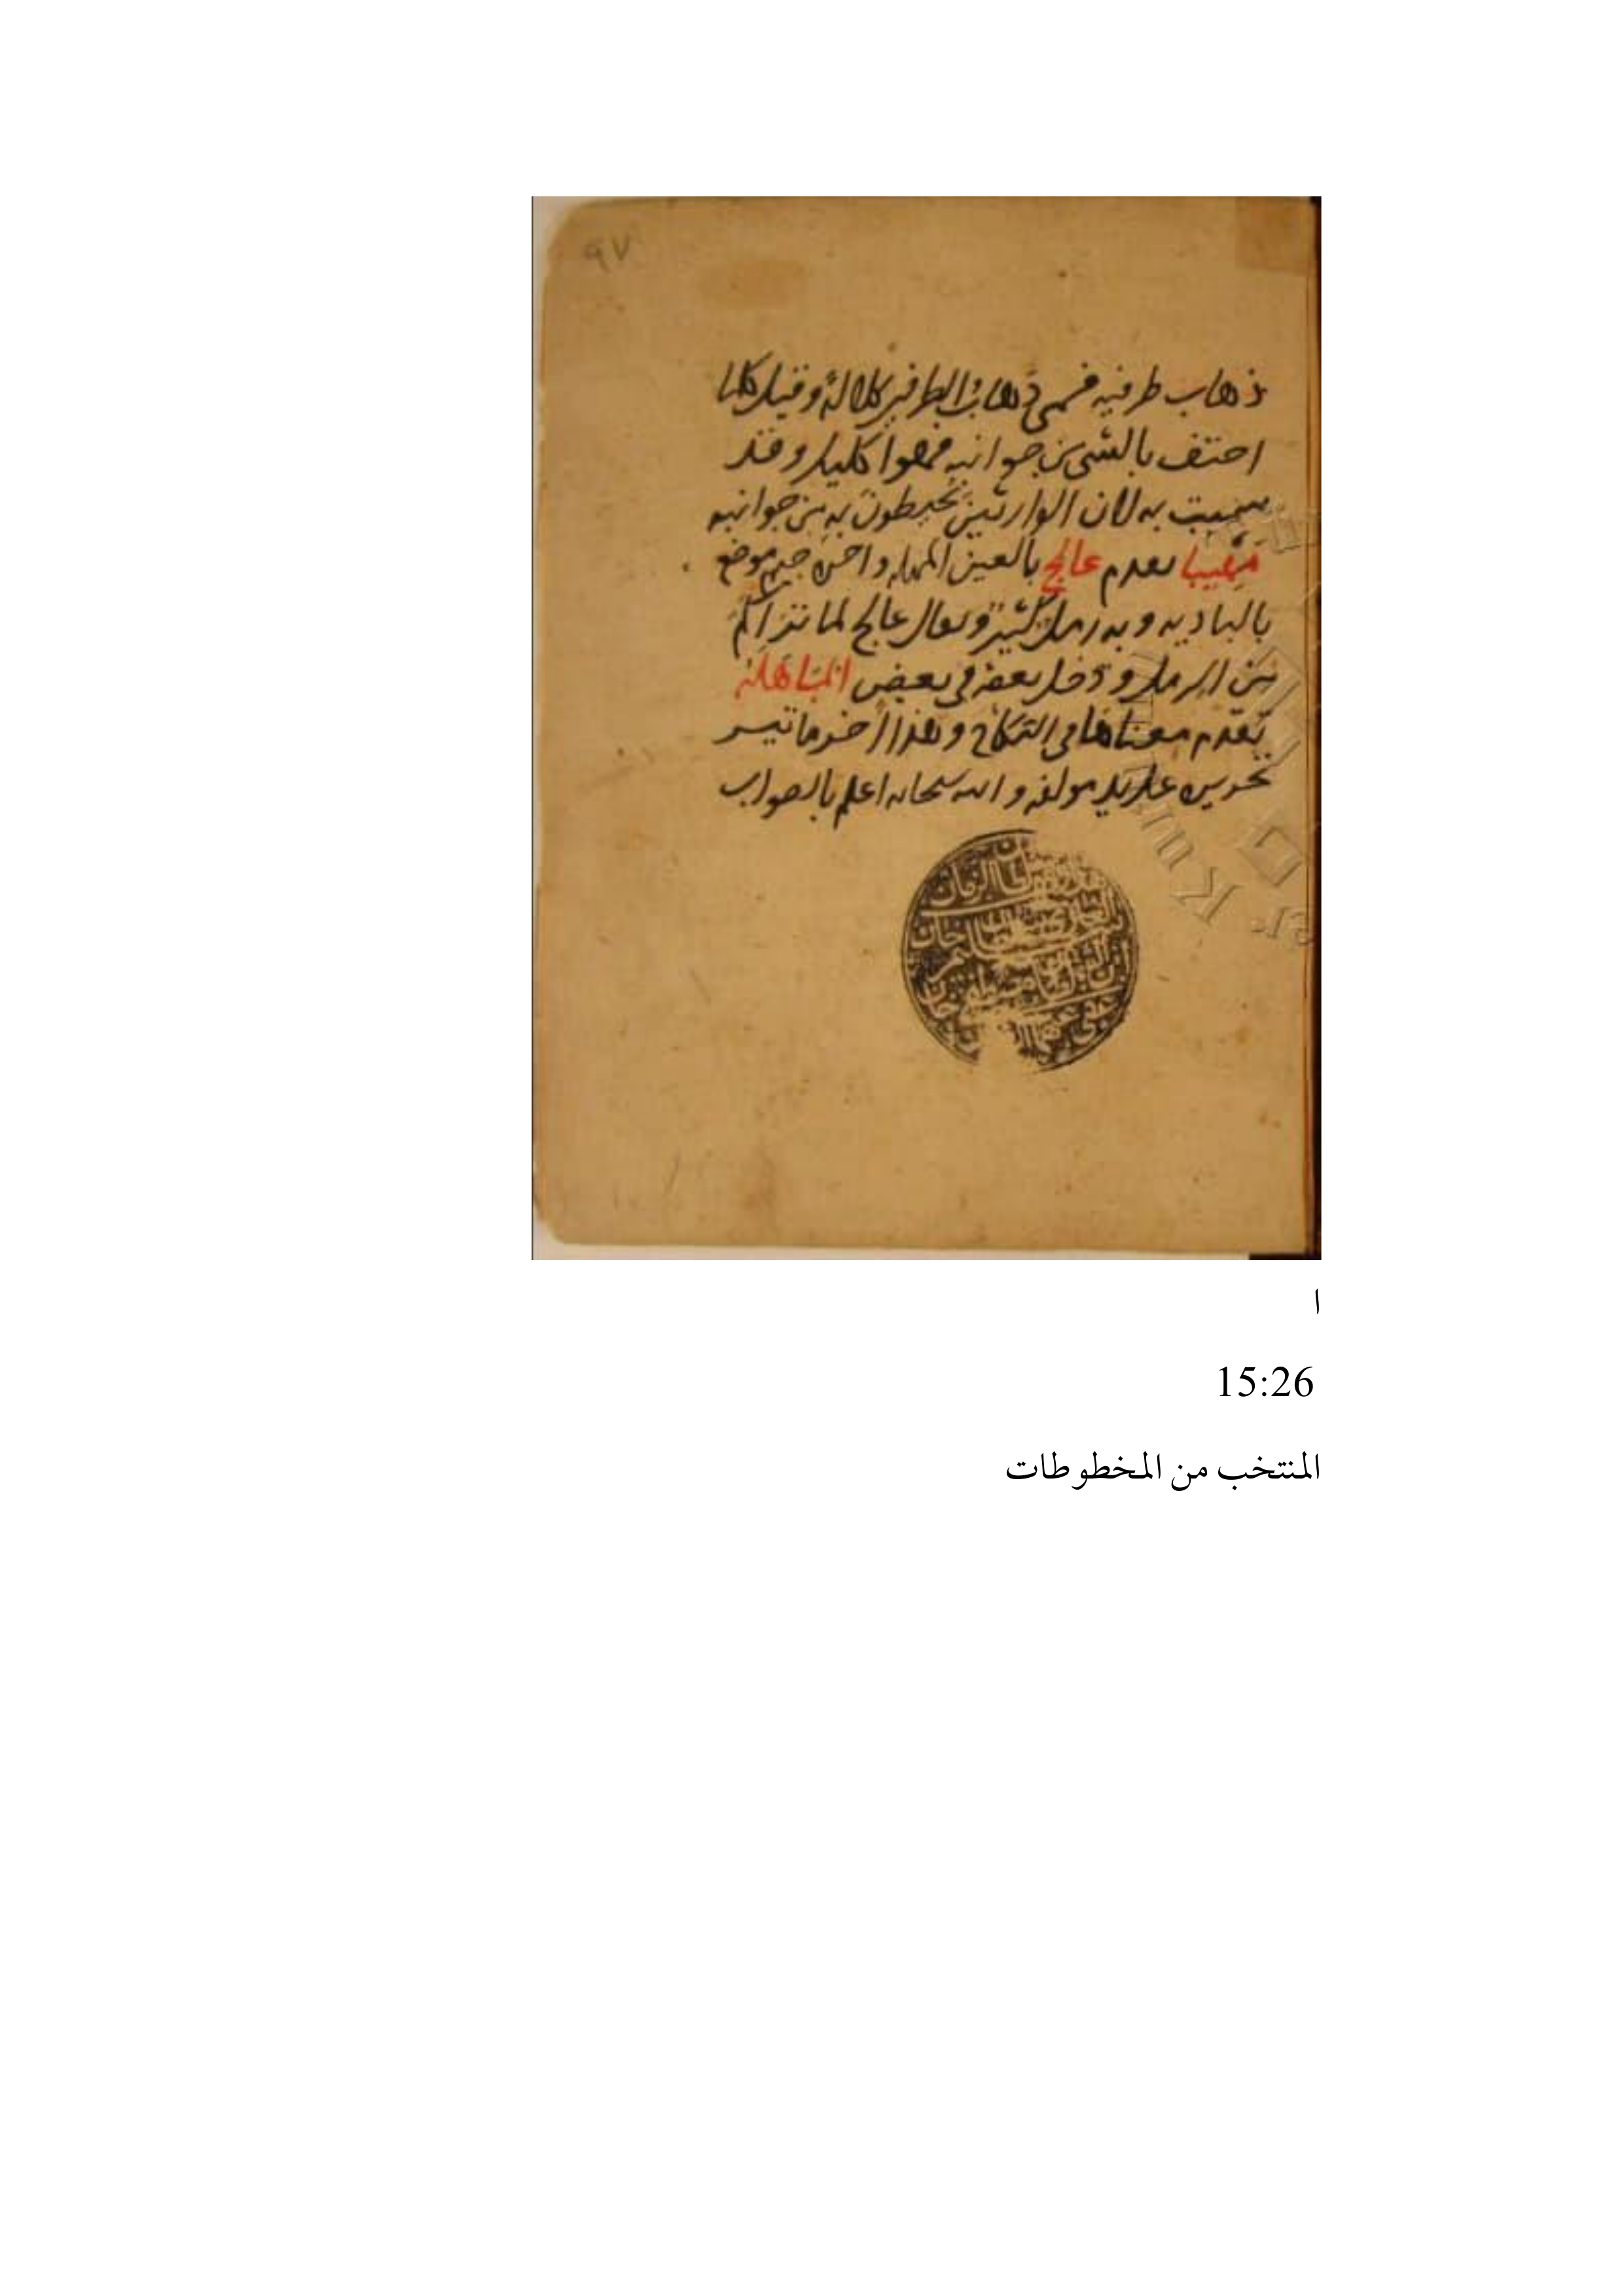 ٩٧
ذهاب طرفيه فسمى ذهاب الطرفين كلالة وقيل كلما
احتف بالشى من جوانبه فهوا كليل وقد
سميت به لان الوارثين يحيطون به من جوانبه
مهيبا تقدم عالج بالعين المهمله واخره جيم موضع
بالباديه وبه رمل كثير ويقال عالج لما تراكم
من الرمل ودخل بعضه في بعض المباهلة
تقدم معناها في النكاح وهذا اخر ما تيسر
تحريره على يد مولفه والله سبحانه اعلم بالصواب
ا
15:26
المنتخب من المخطوطات